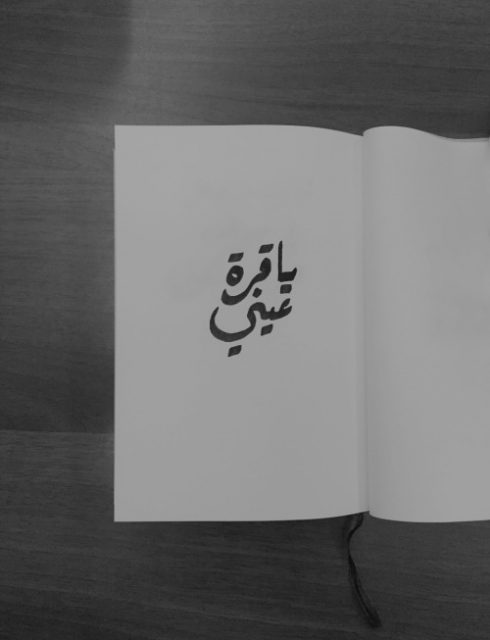 ياقرة
عيني